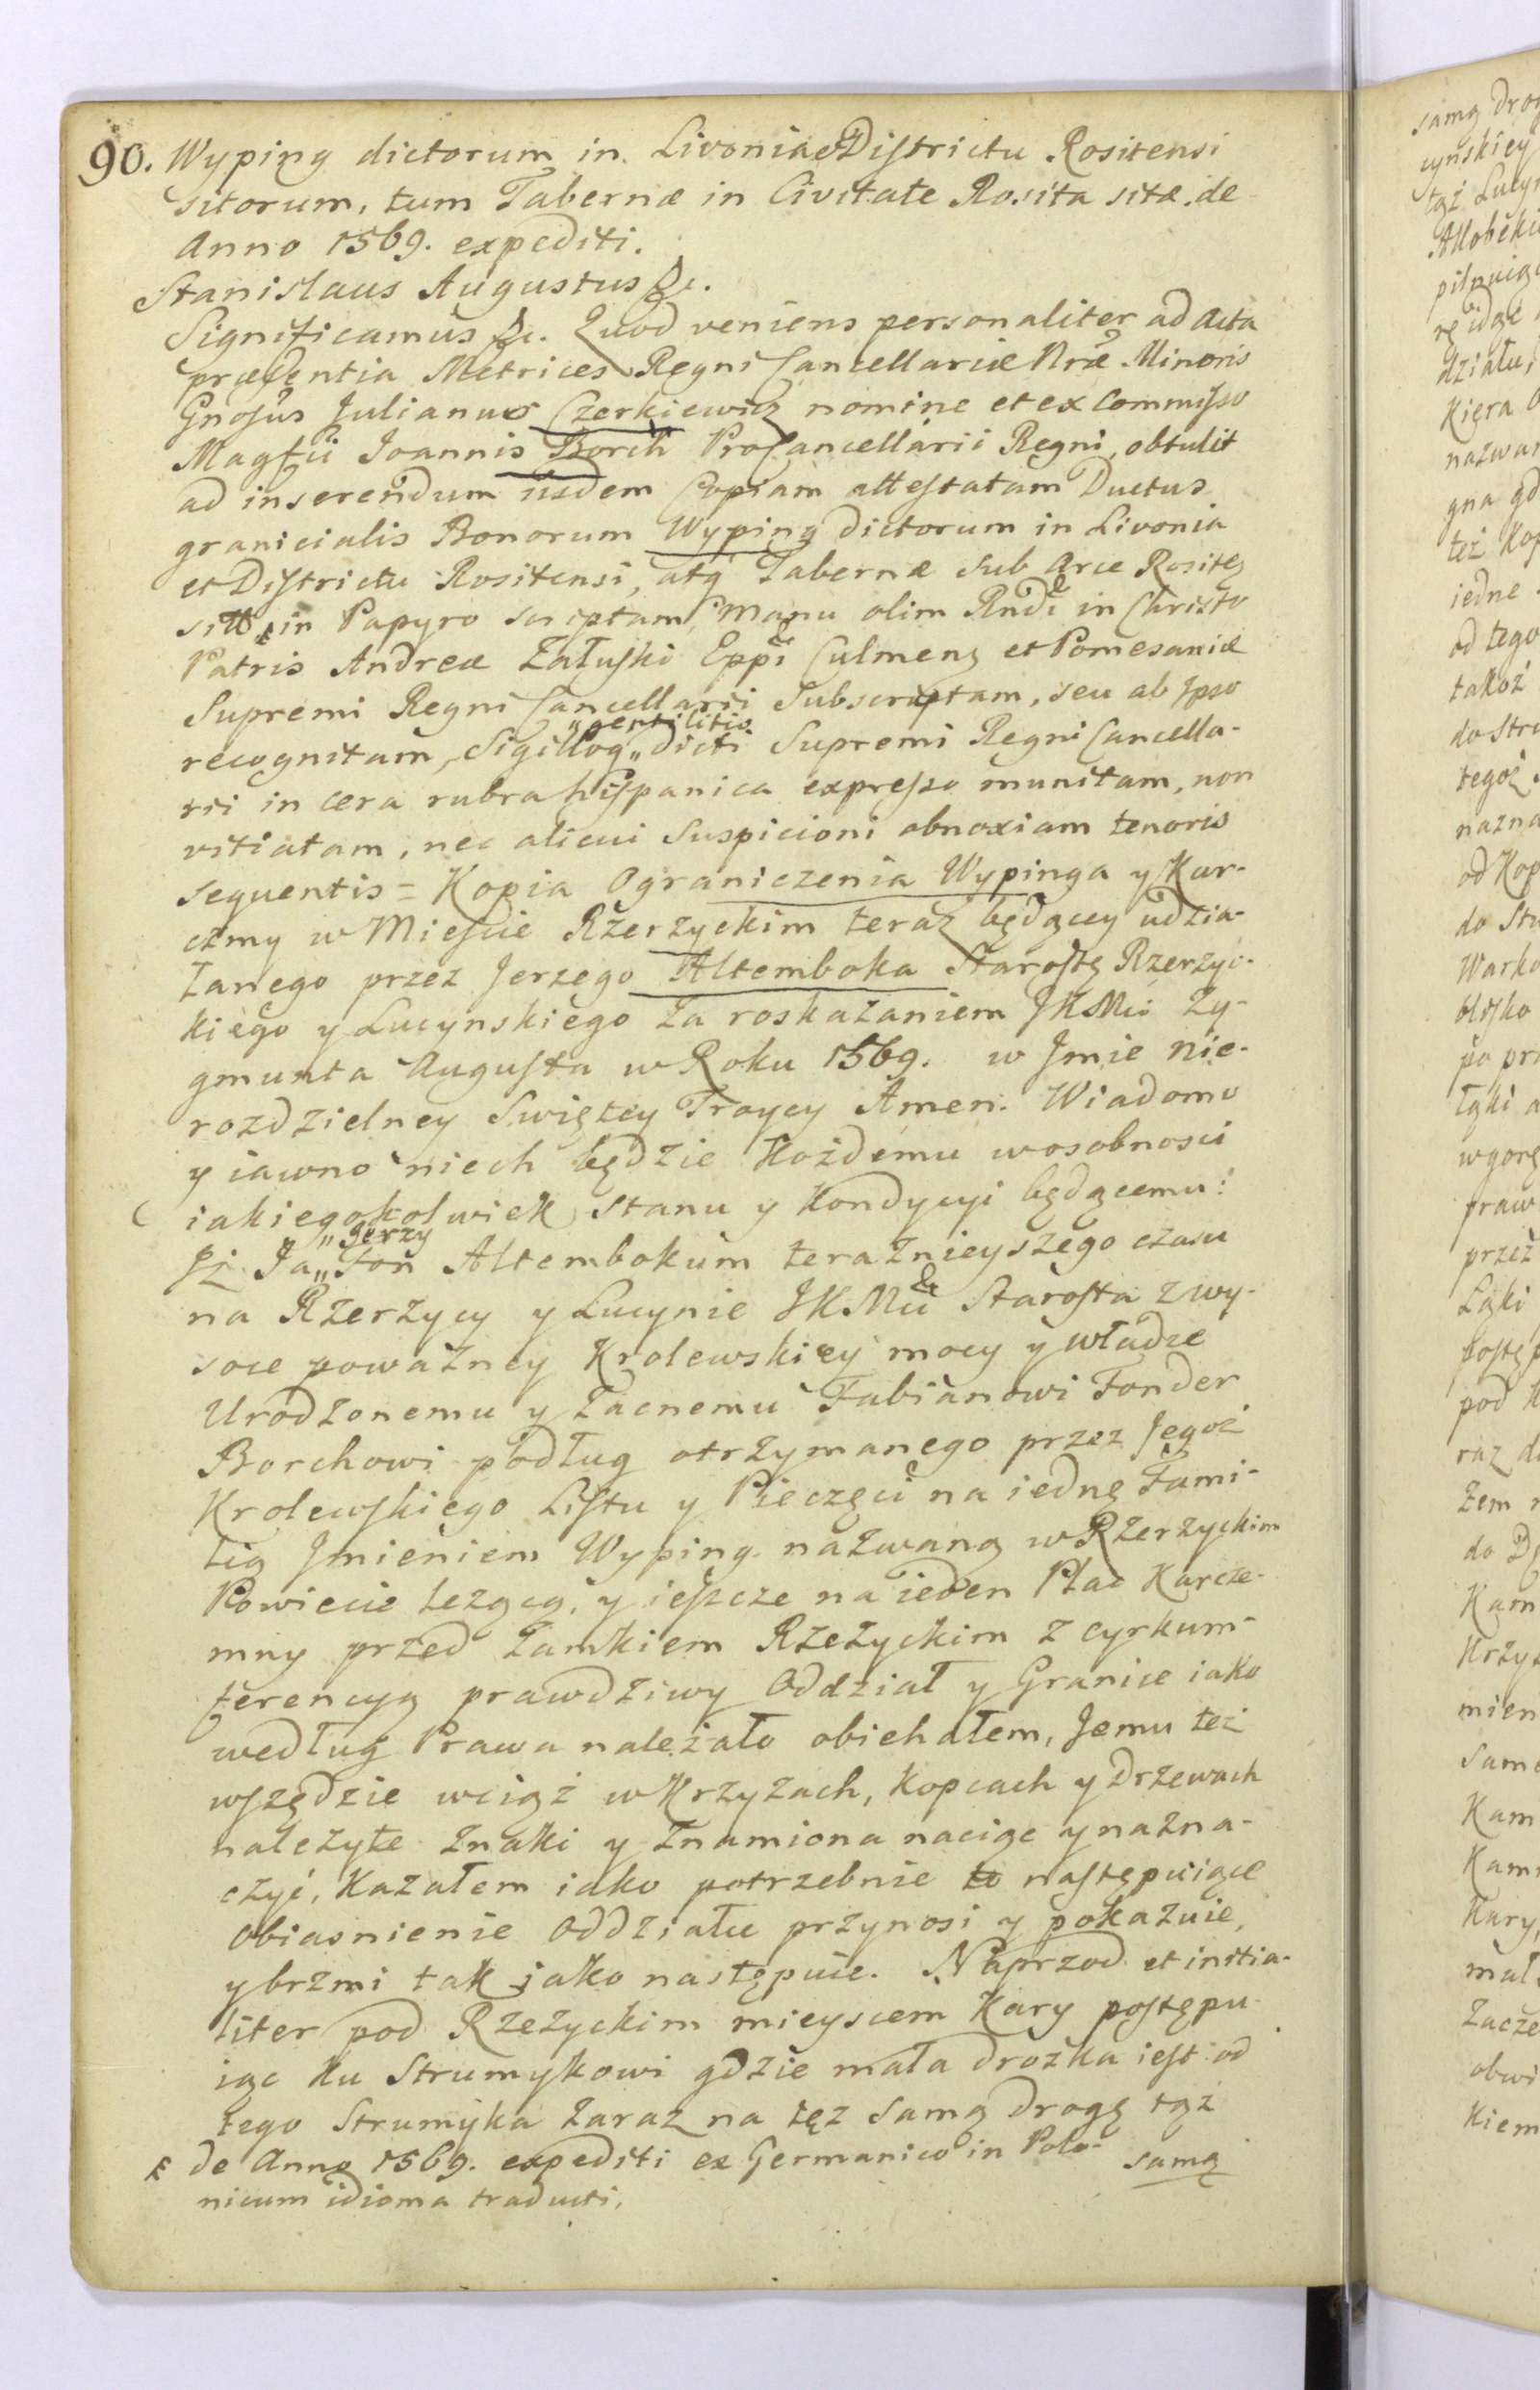 90. Wyping dictorum in Livoniae Districtu Rositensi
sitorum, tum Tabernæ in Civitate Rosita sitæ de
Anno 1569. expediti.
Stanislaus Augustus &c.
Significamus &c. Quod veniens personaliter ad Acta
præsentia Metrices Regni Cancellariæ Nræ Minoris
Gnosus Julianus Czerkiewicz nomine et ex Commisso
Magfii Joannis Borch ProCancellarii Regni, obtulit
ad inserendum iisdem Copiam attestatam Ductus
granicialis Bonorum Wyping dictorum in Livonia
et Districtu Rositensi, atq Tabernæ sub Arce Rositen
sitæ in Papyro scriptam, Manu olim Rndi in Christo
Patris Andreæ Załuski Eppi Culmens et Pomesaniæ
Supremi Regni Cancellarii Subscriptam, seu ab Ipso
recognitam, Sigillo „gentilitio„ dicti Supremi Regni Cancella-
rii in cera rubra hispanica expresso munitam, non
vitiatam, nec alicui Suspicioni obnoxiam tenoris
sequentis = Kopia Ograniczenia Wypinga y Kar-
czmy w Mieście Rzerzyckim teraz będącey udzia-
łanego przez Jerzego Altemboka Starostę Rzerzyc-
kiego y Lucynskiego za roskazaniem JKMci Zy-
gmunta Augusta w Roku 1569. w Jmie nie-
rozdzielney Swiętey Troycy Amen. Wiadomo
y iawno niech będzie Każdemu wosobnosci
iakiegokolwiek stanu y Kondycyi będącemu:
Jż Ja „Jerzy„ Fon Altembokum teraznieyszego czasu
na Rzerzycy y Lucynie JKMci Starosta z wy-
soce poważney Krolewskiey mocy y władze
Urodzonemu y Zacnemu Fabianowi Fonder
Borchowi podług otrzymanego przez Jegoż
Krolewskiego Listu y Pieczęci na iednę Fami-
lią Jmieniem Wyping nazwaną w Rzerzyckim
Powiecie leżącą, y ieszcze na ieden Plac Karcze-
mny przed Zamkiem Rzeżyckim z cyrkum-
ferencyą prawdziwy Oddział y Granice iako
według Prawa należało obiehałem, Jemu też
wszędzie wciąż w Krzyżach, Kopcach y Drzewach
należyte Znaki y Znamiona naciąc y nazna-
czyć, Kazałem iako potrzebnie to następuiące
Obiasnienie Oddziału przynosi y pokazuie,
y brzmi tak iako następuie. Naprzod et initia-
liter pod Rzeżyckim mieyscem Kary postępu-
iąc Ku Strumykowi gdzie mała drożka iest od
tego Strumyka zaraz na tęż samą Drogę tąż
de Anno 1569. expediti ex Germanico in Polo-
nicum idioma traducti.
samą
samą Dro
cynskiey
tąż Lucyn
pilnuiąc
działu,
Kiera
nazwan
gna gd
też Kop
iedne
od tego
takoż
do Stru
tegoż
nazna
od Kop
do Stru
Warko
blisko
po pra
łąki
wgorę
praw
przez
Łąki
postęp
pod
raz d
żem
do
Kam
Krzyż
mien
Same
Kam
Kami
Kary,
mał
Zacze
obwi
Kiem